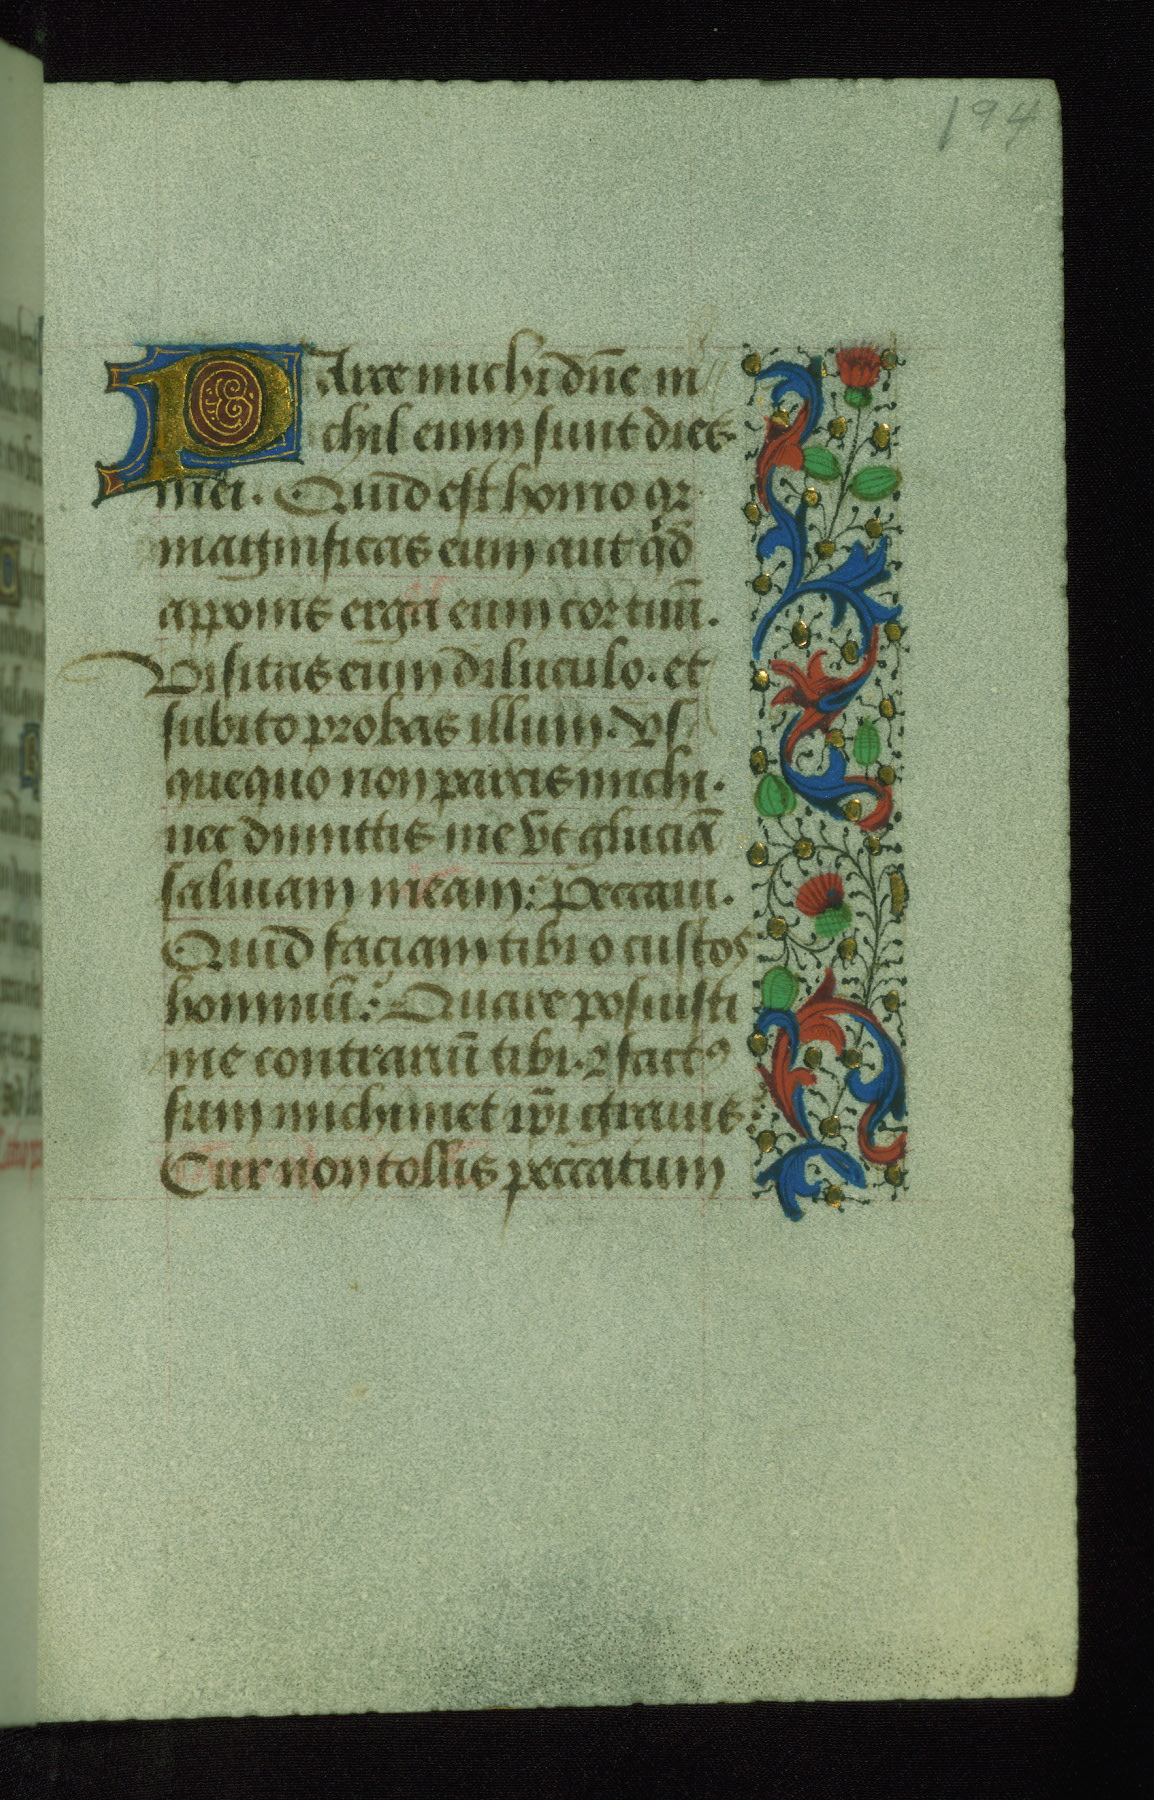 194
Parce michi dn̄e ni
chil enim sunt dies
mei. Quid est homo qr
magnificas eum aut qd
apponis erga eum cor tuū.
Visitas eum diluculo. et
subito probas illum. Vs
quequo non parcis michi.
nec dimittis me vt gluciā
saliuam meam: Peccaui.
Quid faciam tibi o custos
hominū: Quare posuisti
me contrariū tibi. ⁊ factꝯ
sum michimet ip̄i grauis:
Cur non tollis peccatum